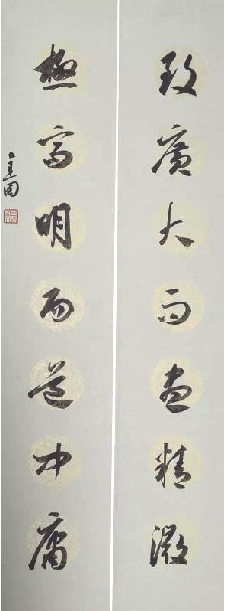 致廣大而盡精微
極高明而道中庸